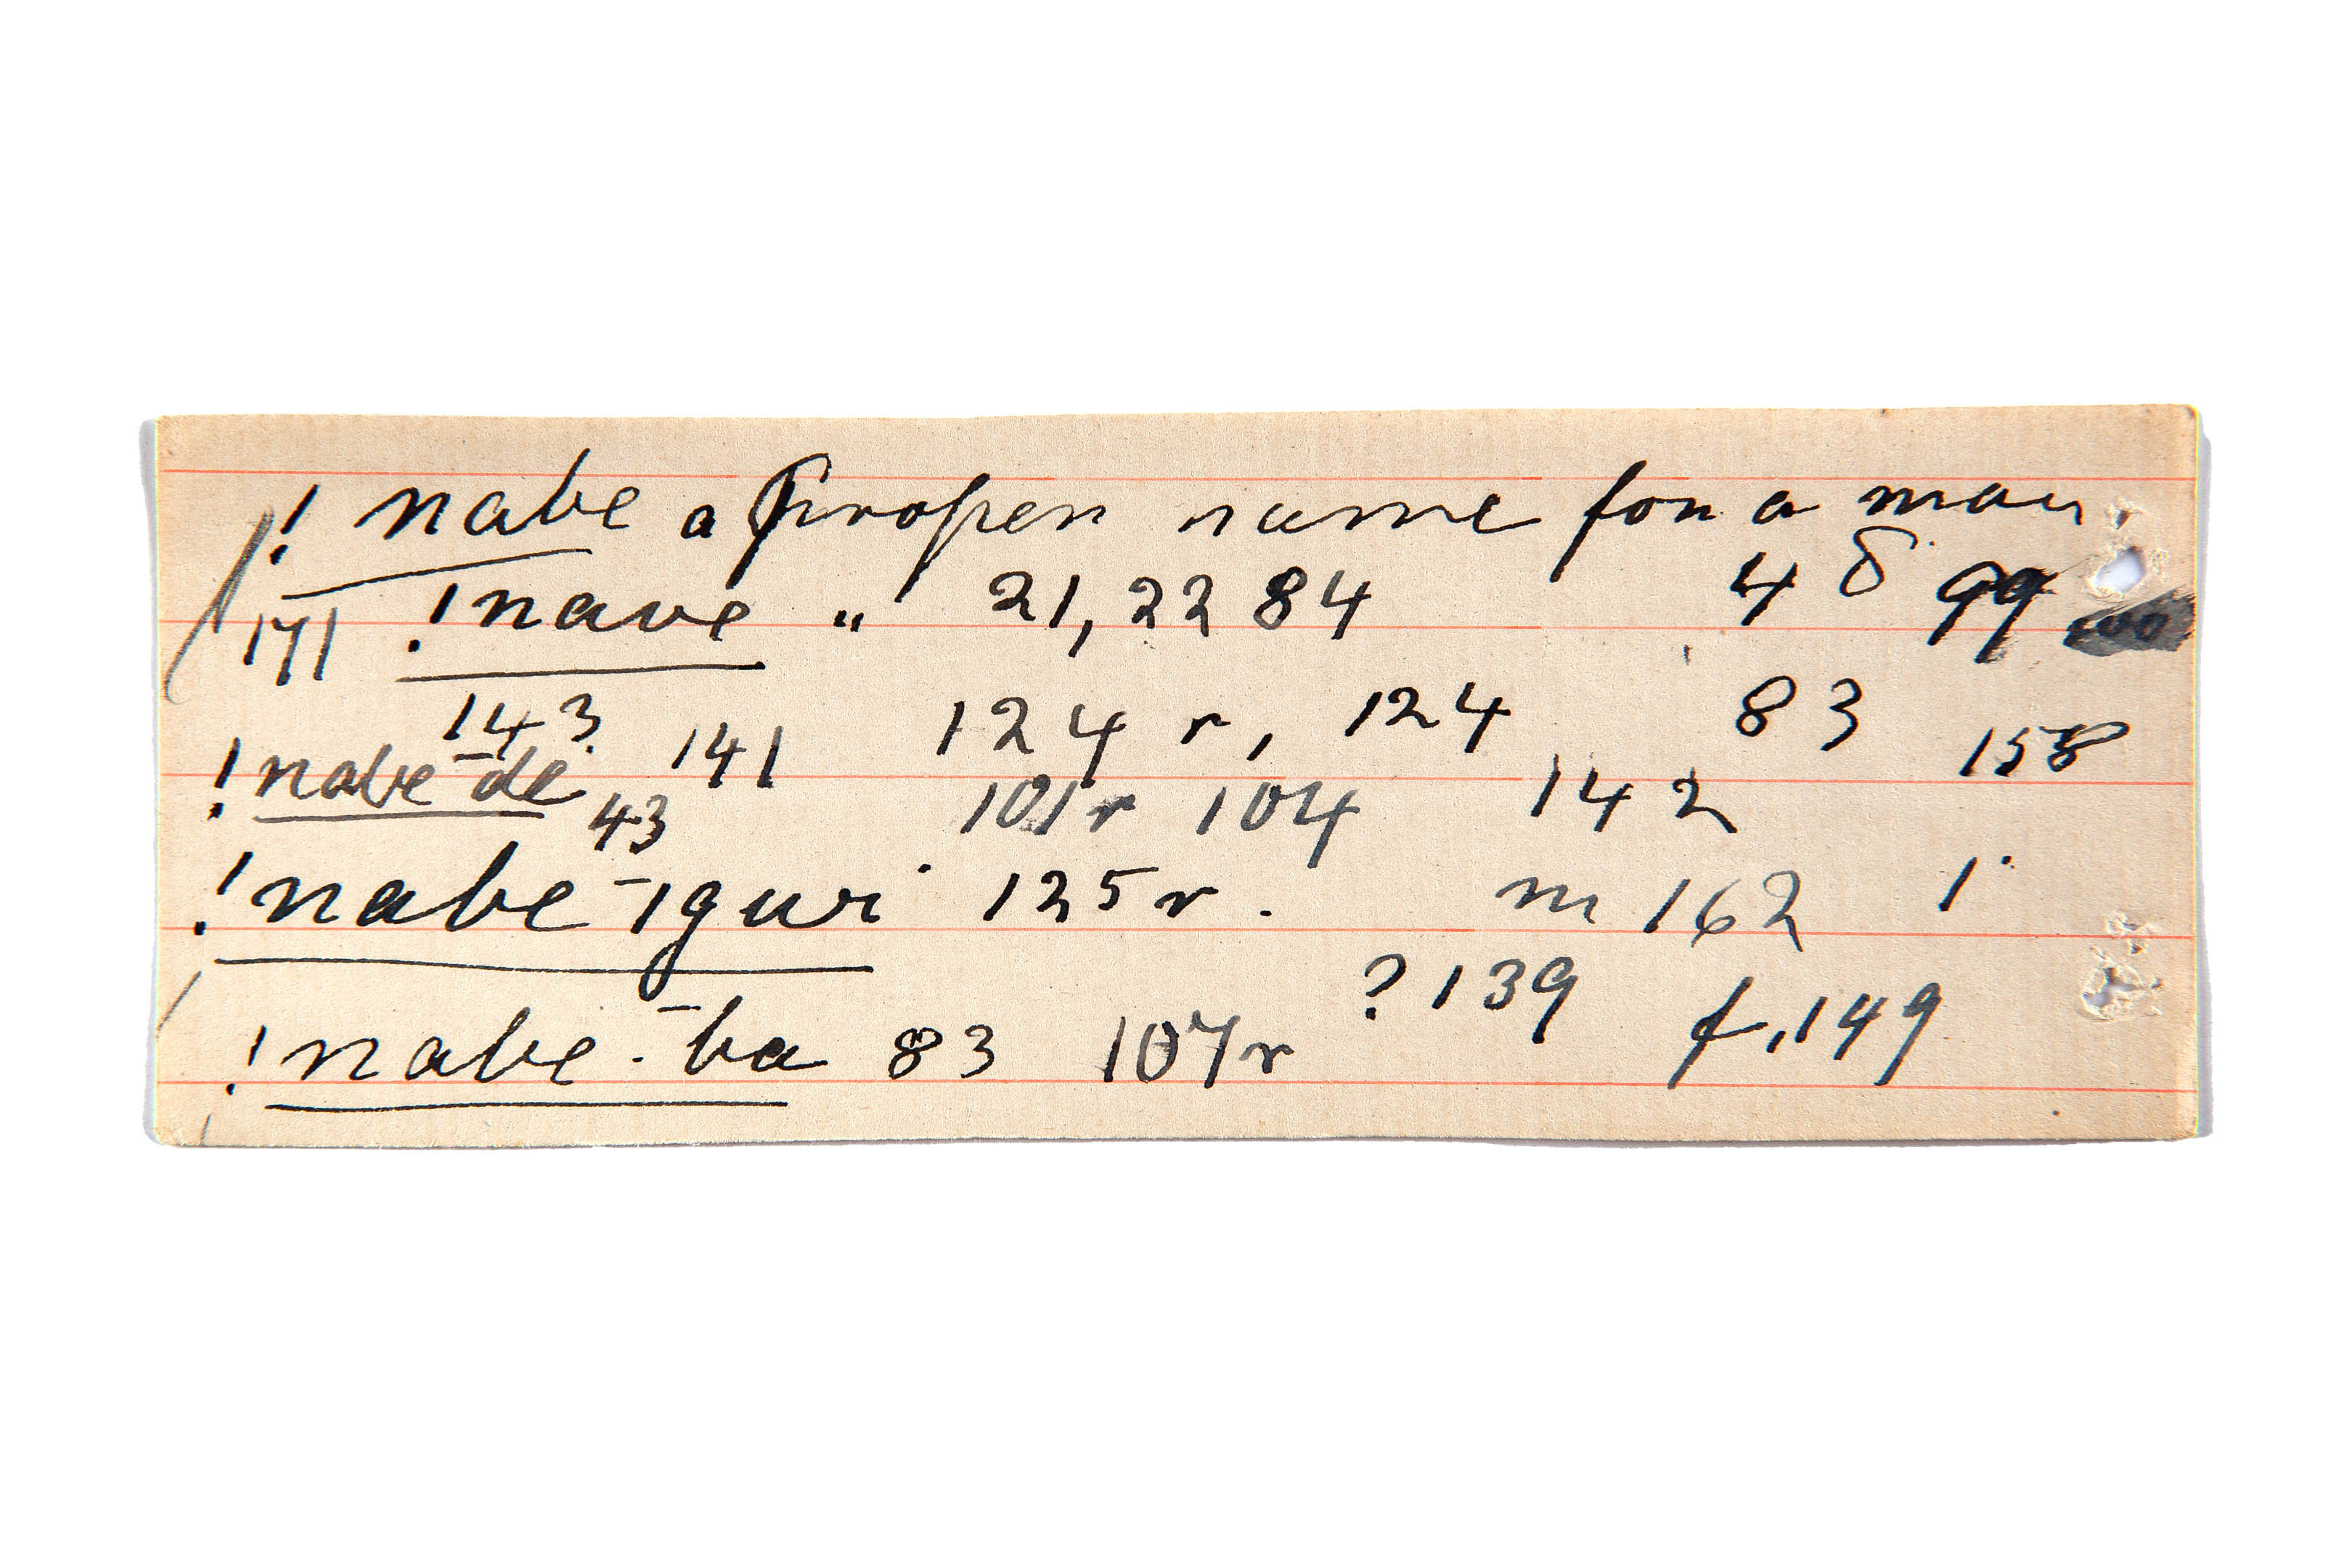 ! nabe a proper name for a man.
171 ! nave " 21, 22 84 48 99
143 141 124 r, 124 83 158
! nabe-de 43 101r 104 142
! nabe-igui 125 r. m 162 1
? 139 f. 149
! nabe-ba 83 107r